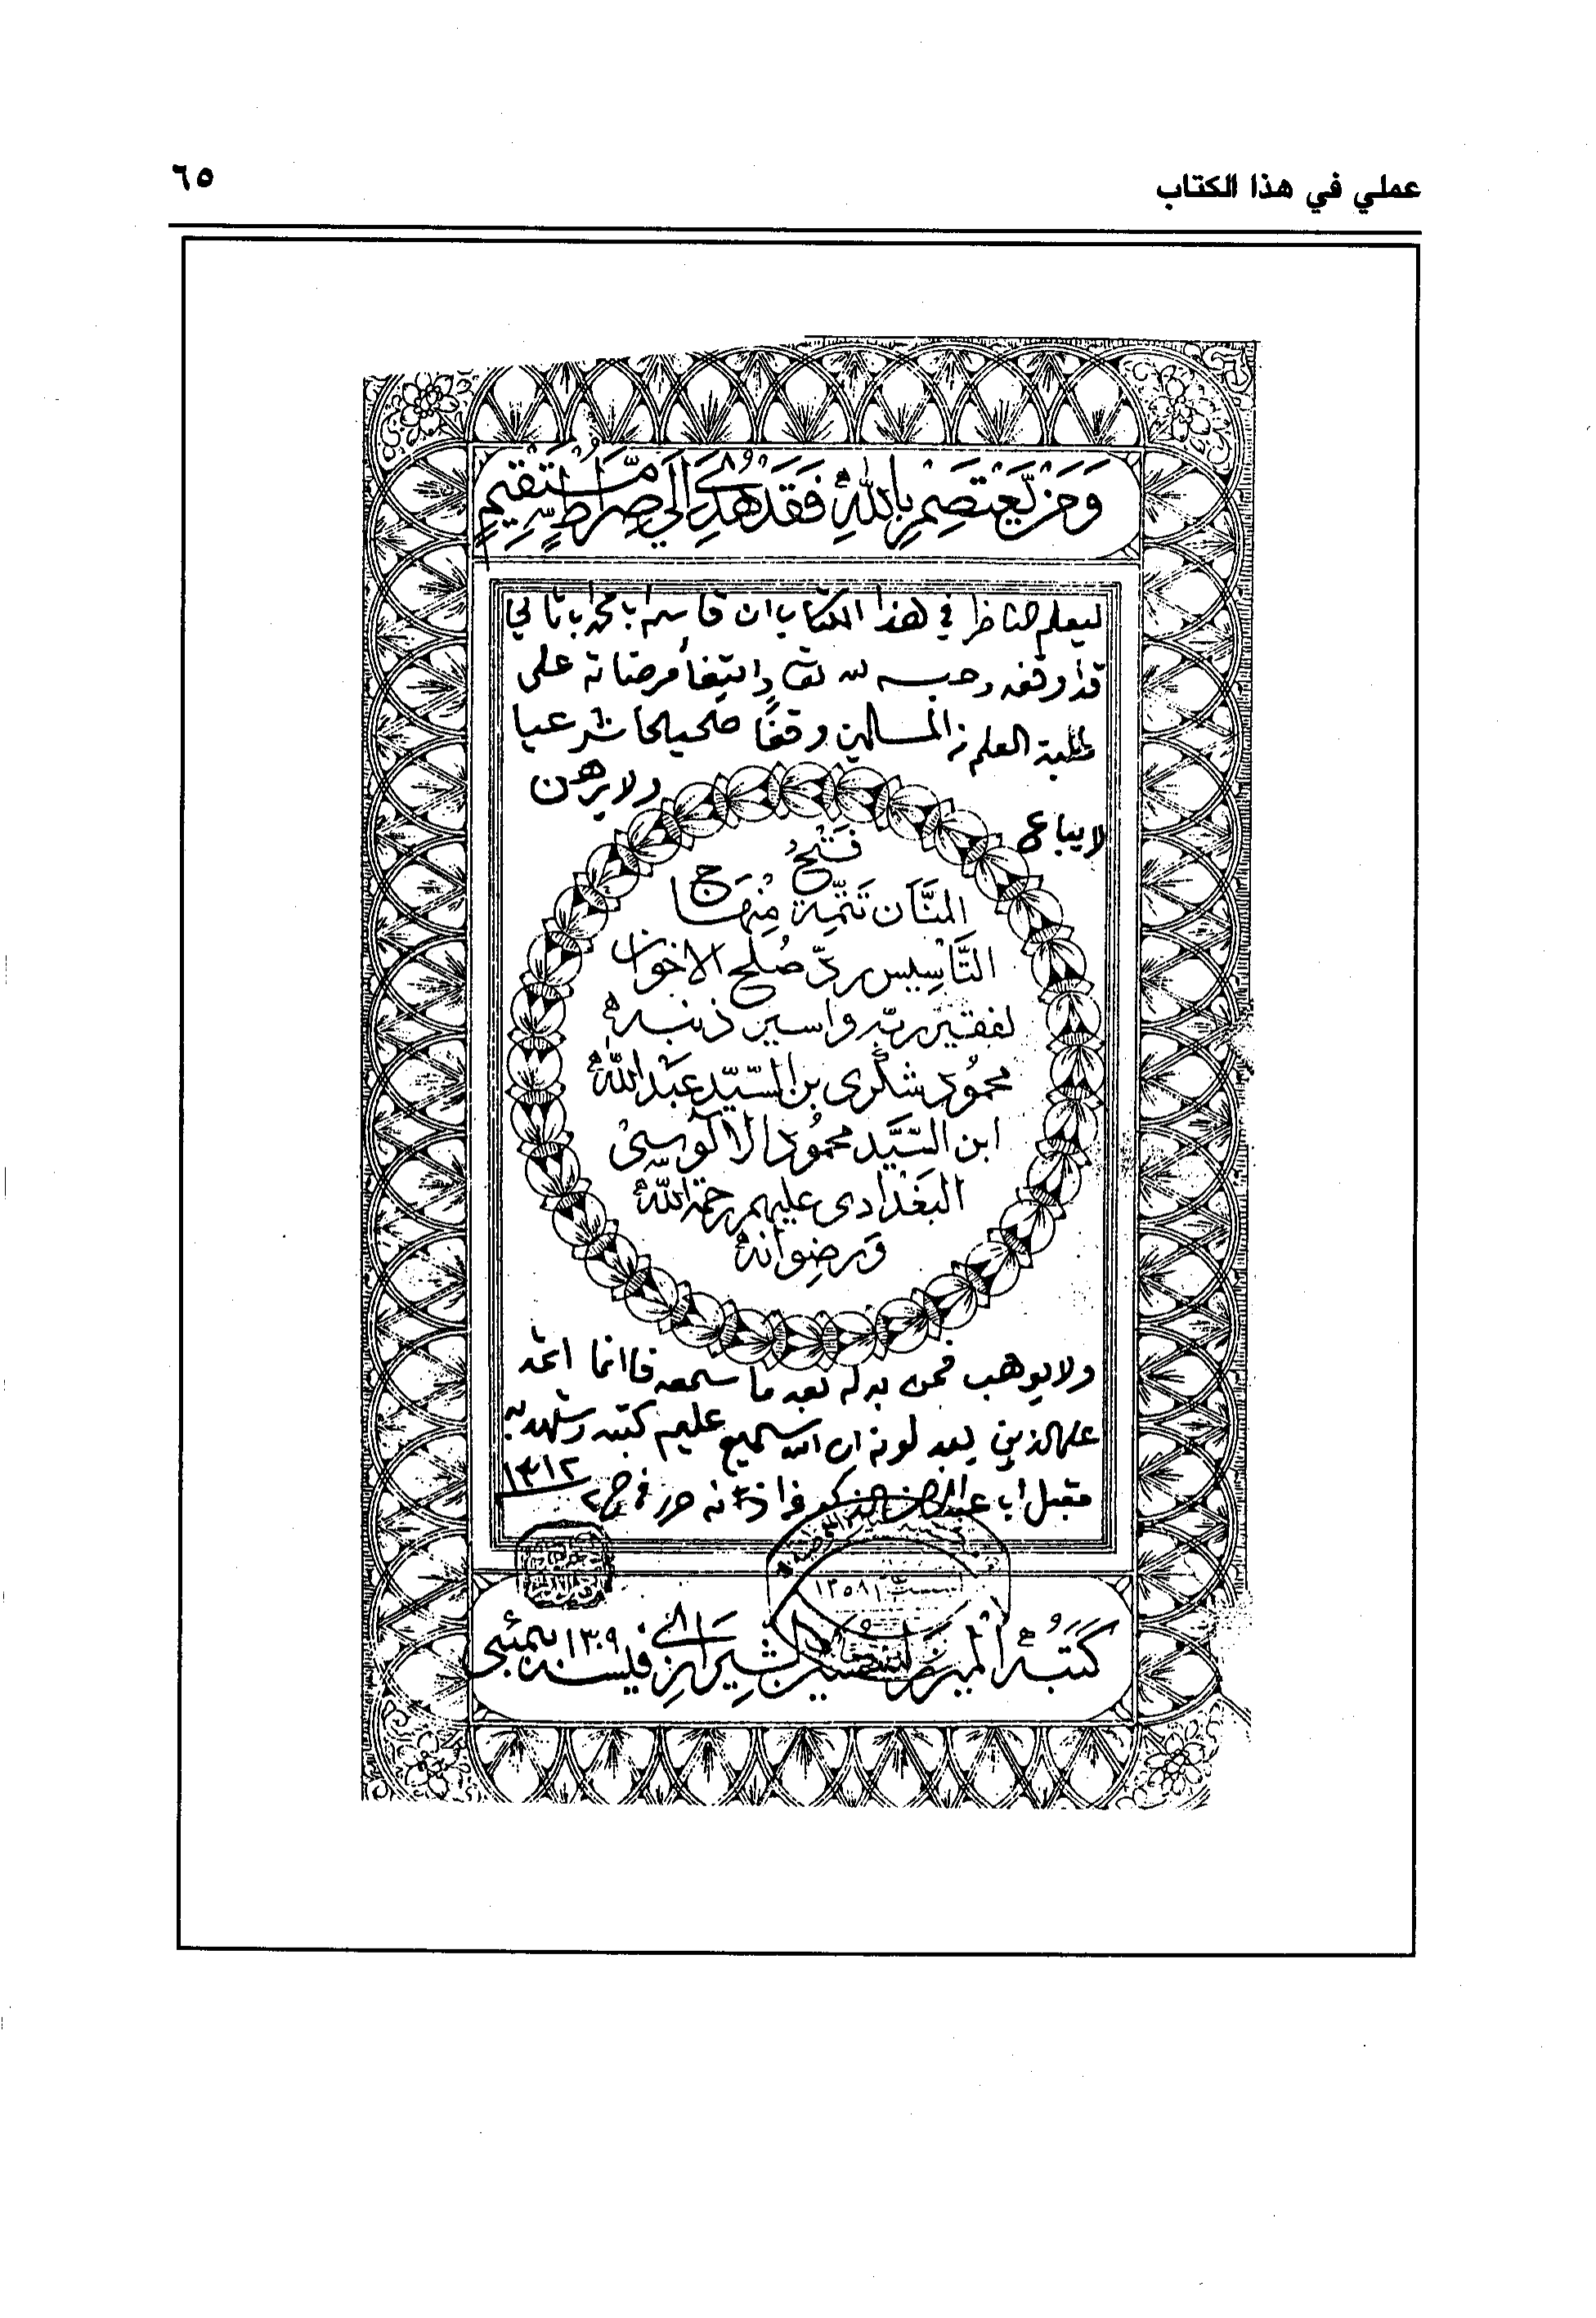 عملي في هذا الكتاب
٦٥
وَمَن يَّعْتَصِمْ بِاللهِ فَقَدْ هُدِيَ إِلَىٰ صِرَاطٍ مُّسْتَقِيمٍ
ليعلم الناظر في هذا الكتاب ان قاسم ابا محمد اباثاني
قد اوقفه وحبسه لله تعا وابتغأ مرضاته على
طلبة العلم من المسلمين وقفًا صحيحا شرعيا
لا يباع ولا يرهن
فَتْحُ
المنَّان تَتِمَّة مِنْهَاج
التَّأسِيس ردّ صُلح الاخوان
لفقير ربّه واسير ذنبه
محمُود شكُرى بن السّيّد عَبْد اللّٰه
ابن السَّيَّد محمُود الآلوسىْ
البَغْدَادى عليهم رحمة اللّٰه
وَرضِوانه
ولا يوهب فمن بدله بعد ما سمعه فاانما اثمه
على الذين يبدلونه ان الله سميع عليم كتبه وشهد به
مقبل ابن عبدالرحمن الذكير حرر في ج٢ ١٣١٢
١٣٥٨
كَتَبَهُ الميرزا الشيرازي في سنه ١٣٠٩ بمبئى